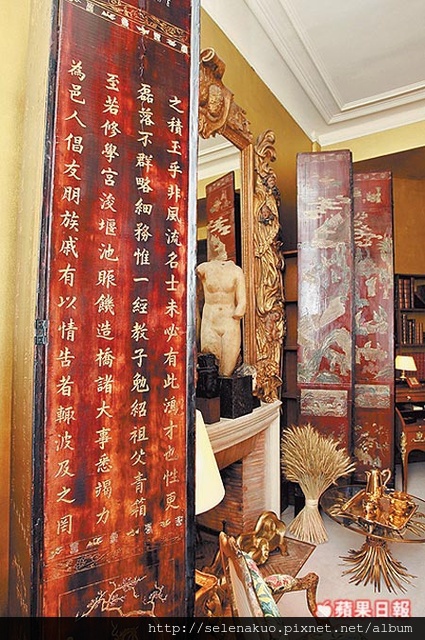 之積玉乎非風流名士未必有此鴻才也性更
磊落不群略細務惟一經教子勉紹祖父青箱
至若修學宮浚堰池賑饑造橋諸大事悉竭力
為邑人倡友朋族戚有以情告者輒波及之罔
蘋果日報
http://selenakuo.pixnet.net/album